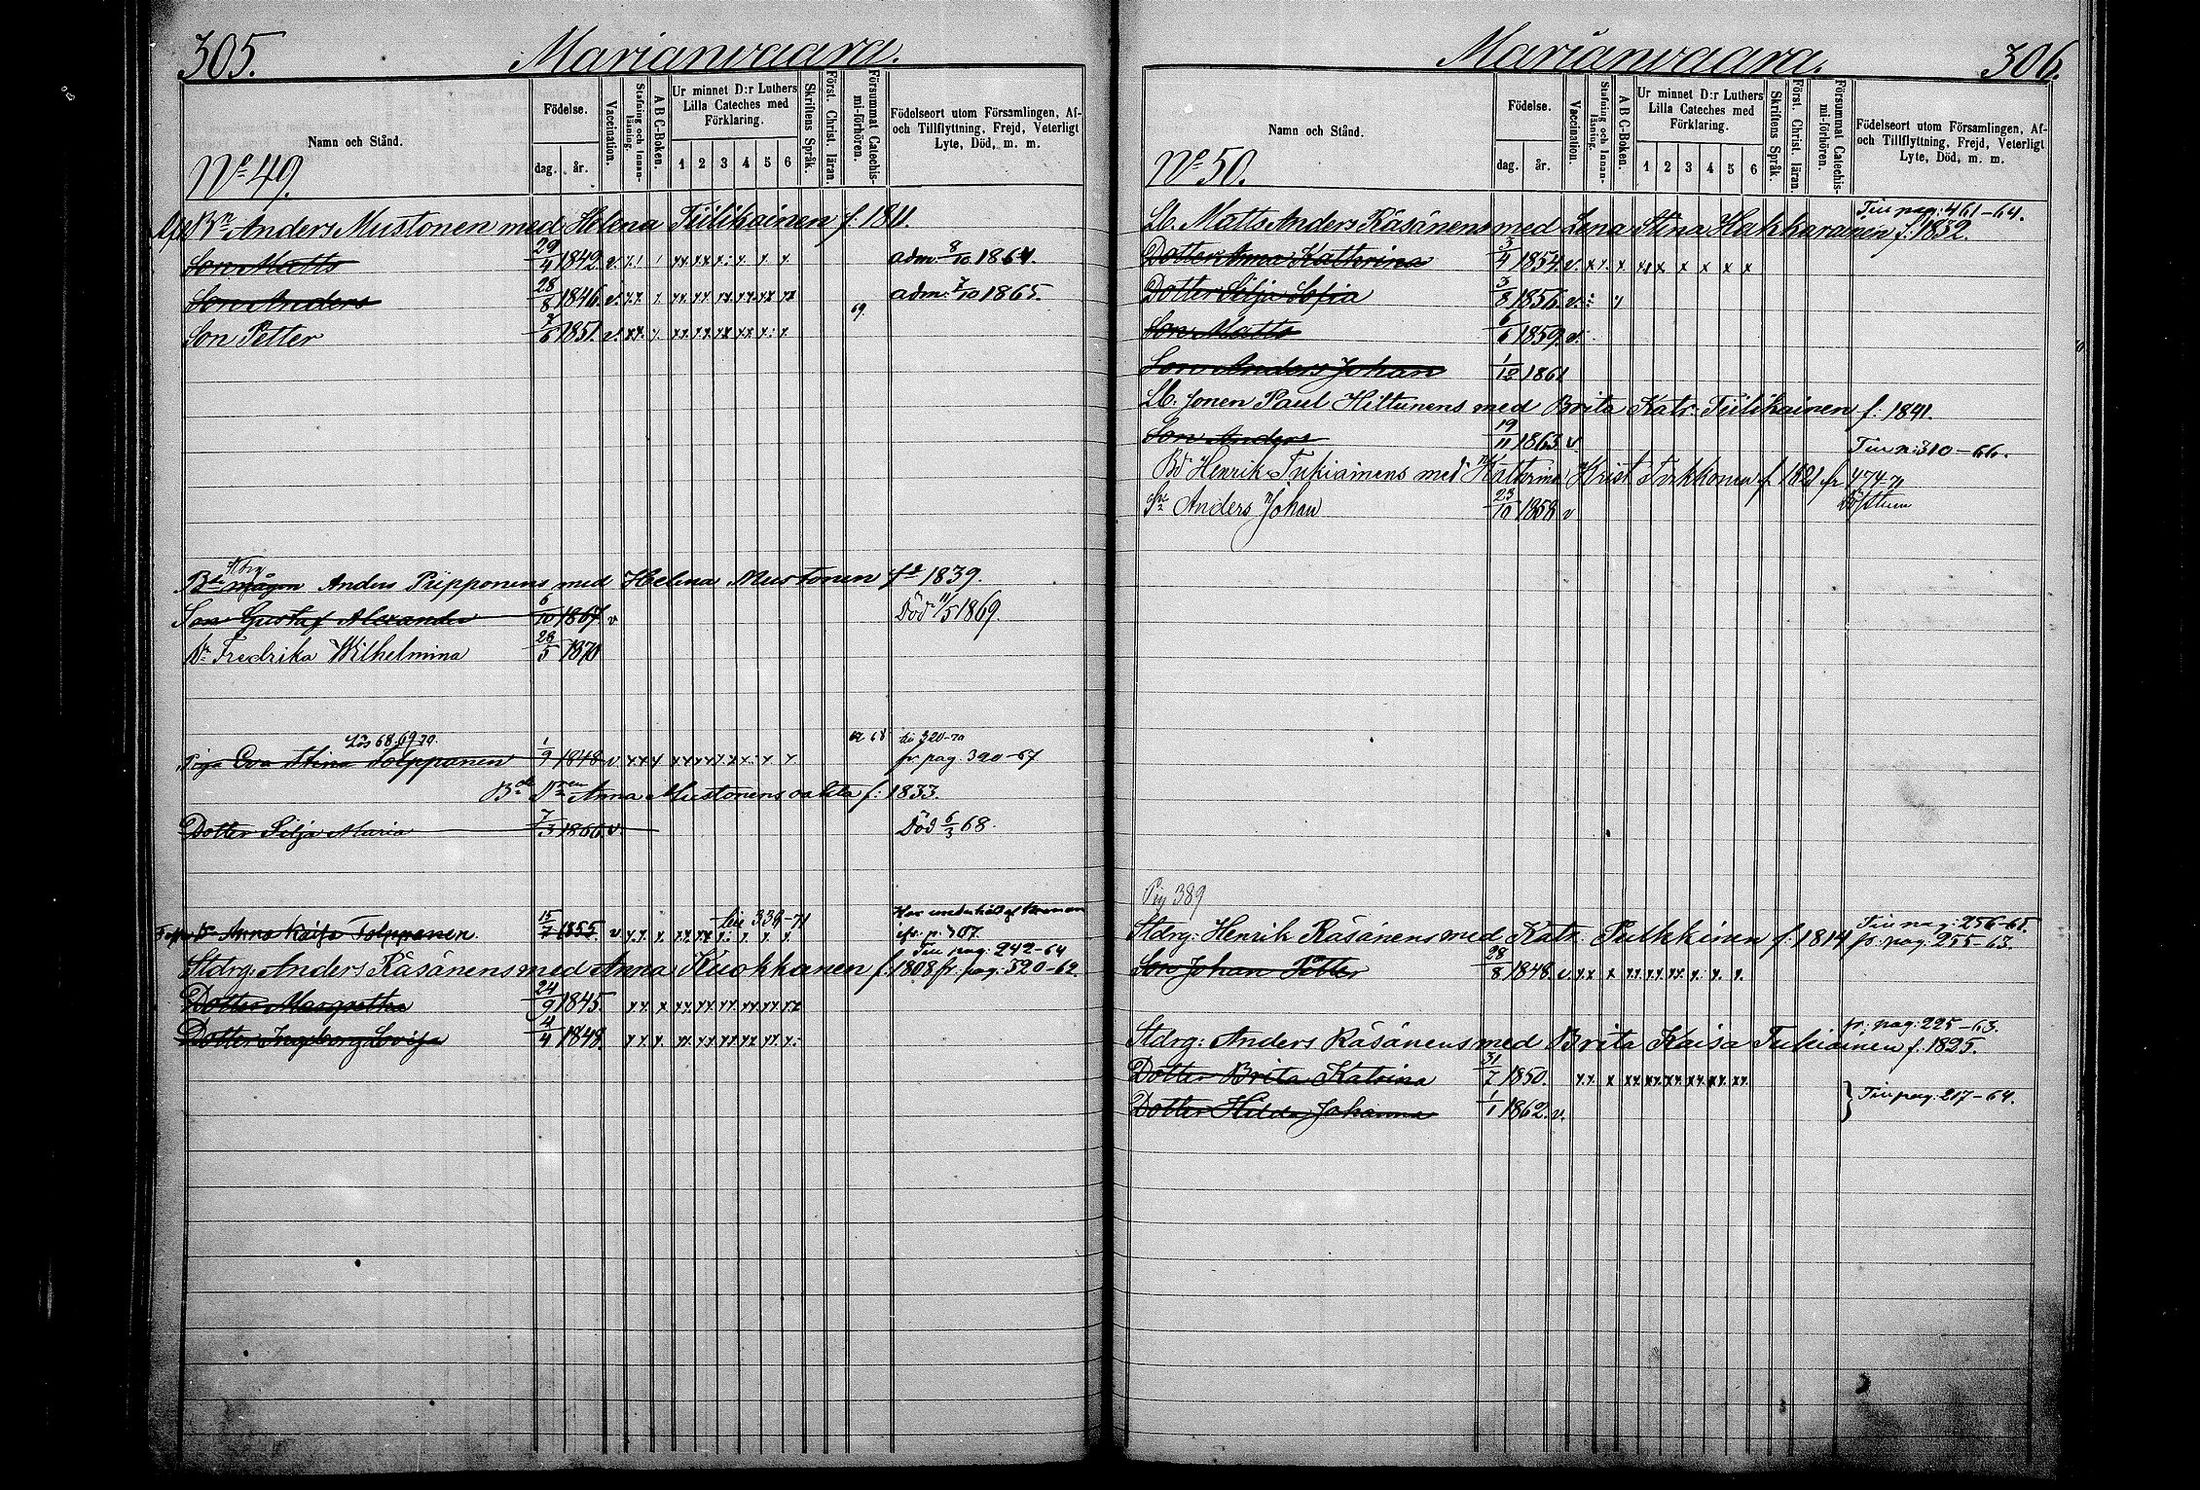 305. Marianvaara.
Namn och Stånd.
Födelse.
dag. år.
Vaccination.
Stafning och Innanläsning.
A B C-Boken.
Ur minnet D:r Luthers Lilla Cateches med Förklaring.
1 2 3 4 5 6
Skriftens Språk.
Först. Christ. läran.
Försummat Catechismi-förhören.
Födelseort utom Församlingen, Af- och Tillflyttning, Frejd, Veterligt Lyte, Död, m. m.
No 49.
Anders Mustonen med Helena Tiilikainen f: 1811.
Son Matts 29/4 1842. v. adm. 8/10 1864.
Son Anders 28/8 1846. v. adm. 7/10 1865.
69.
Son Petter 7/6 1851. v.
Anders Piipponens med Helena Mustonen fd 1839.
Son Gustaf Alexander 6/10 1867 v Död 11/5 1869.
Dr Fredrika Wilhelmina 28/5 1870
Lös 68. 69. 70.
Piga Eva Stina Tolppanen 1/9 1848 v 68 fr pag. 320-67
Anna Mustonens oäkta f: 1833.
Dotter Silja Maria 7/3 1866. v. Död 6/3 68.
Anna Kaisa Tolppanen. 15/7 1855. v.
Till pag: 242-64
Stdrg: Anders Räsänens med Anna Kuokkanen f. 1808 fr. pag: 320-62.
Dotter Margretha 24/9 1845.
Dotter Ingeborg Lovisa 4/4 1848.
Marianvaara. 306.
Namn och Stånd.
Födelse.
dag. år.
Vaccination.
Stafning och Innanläsning.
A B C-Boken.
Ur minnet D:r Luthers Lilla Cateches med Förklaring.
1 2 3 4 5 6
Skriftens Språk.
Först. Christ. läran.
Försummat Catechismi-förhören.
Födelseort utom Församlingen, Af- och Tillflyttning, Frejd, Veterligt Lyte, Död, m. m.
No 50.
Till pag: 461-64.
Lb. Matts Anders Räsänens med Lena Stina Hakkarainen f. 1832.
Dotter Anna Katherina 3/4 1854. v.
Dotter Silja Sofia 3/8 1856. v.
Son Matts 6/6 1859. v.
Son Anders Johan 1/12 1861
Lb: Sonen Paul Hiltunens med Brita Katr: Tiilikainen f: 1841.
Son Anders 19/11 1863 v Till p: 310-66.
Henrik Tukiainens med Katherina Krist Turkkonen f. 1821 fr 474-71
Anders Johan 23/10 1858 v
Pig 389
Till pag: 256-65.
Stdrg: Henrik Räsänens med Katr: Pulkkinen f: 1814 fr: pag: 255-63.
Son Johan Petter 28/8 1848. v.
fr: pag: 225-63.
Stdrg: Anders Räsänens med Brita Kaisa Tukiainen f. 1825.
Dotter Brita Katrina 31/7 1850.
Dotter Hilda Johanna 1/1 1862. v. } Till pag: 217-64.